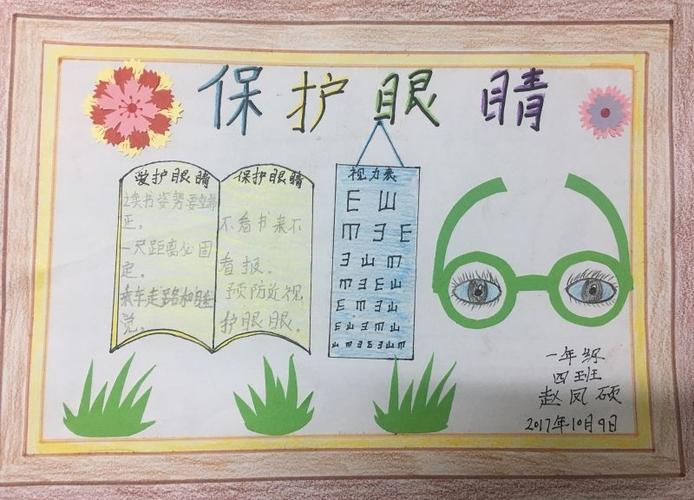 保护眼睛
爱护眼睛
读书姿势要端
正。
一尺距离必固
定。
乘车走路和睡
觉。
保护眼睛
不看书来不
看报。
预防近视
护眼眼。
视力表
一年级
四班
赵凤硕
2017年10月9日